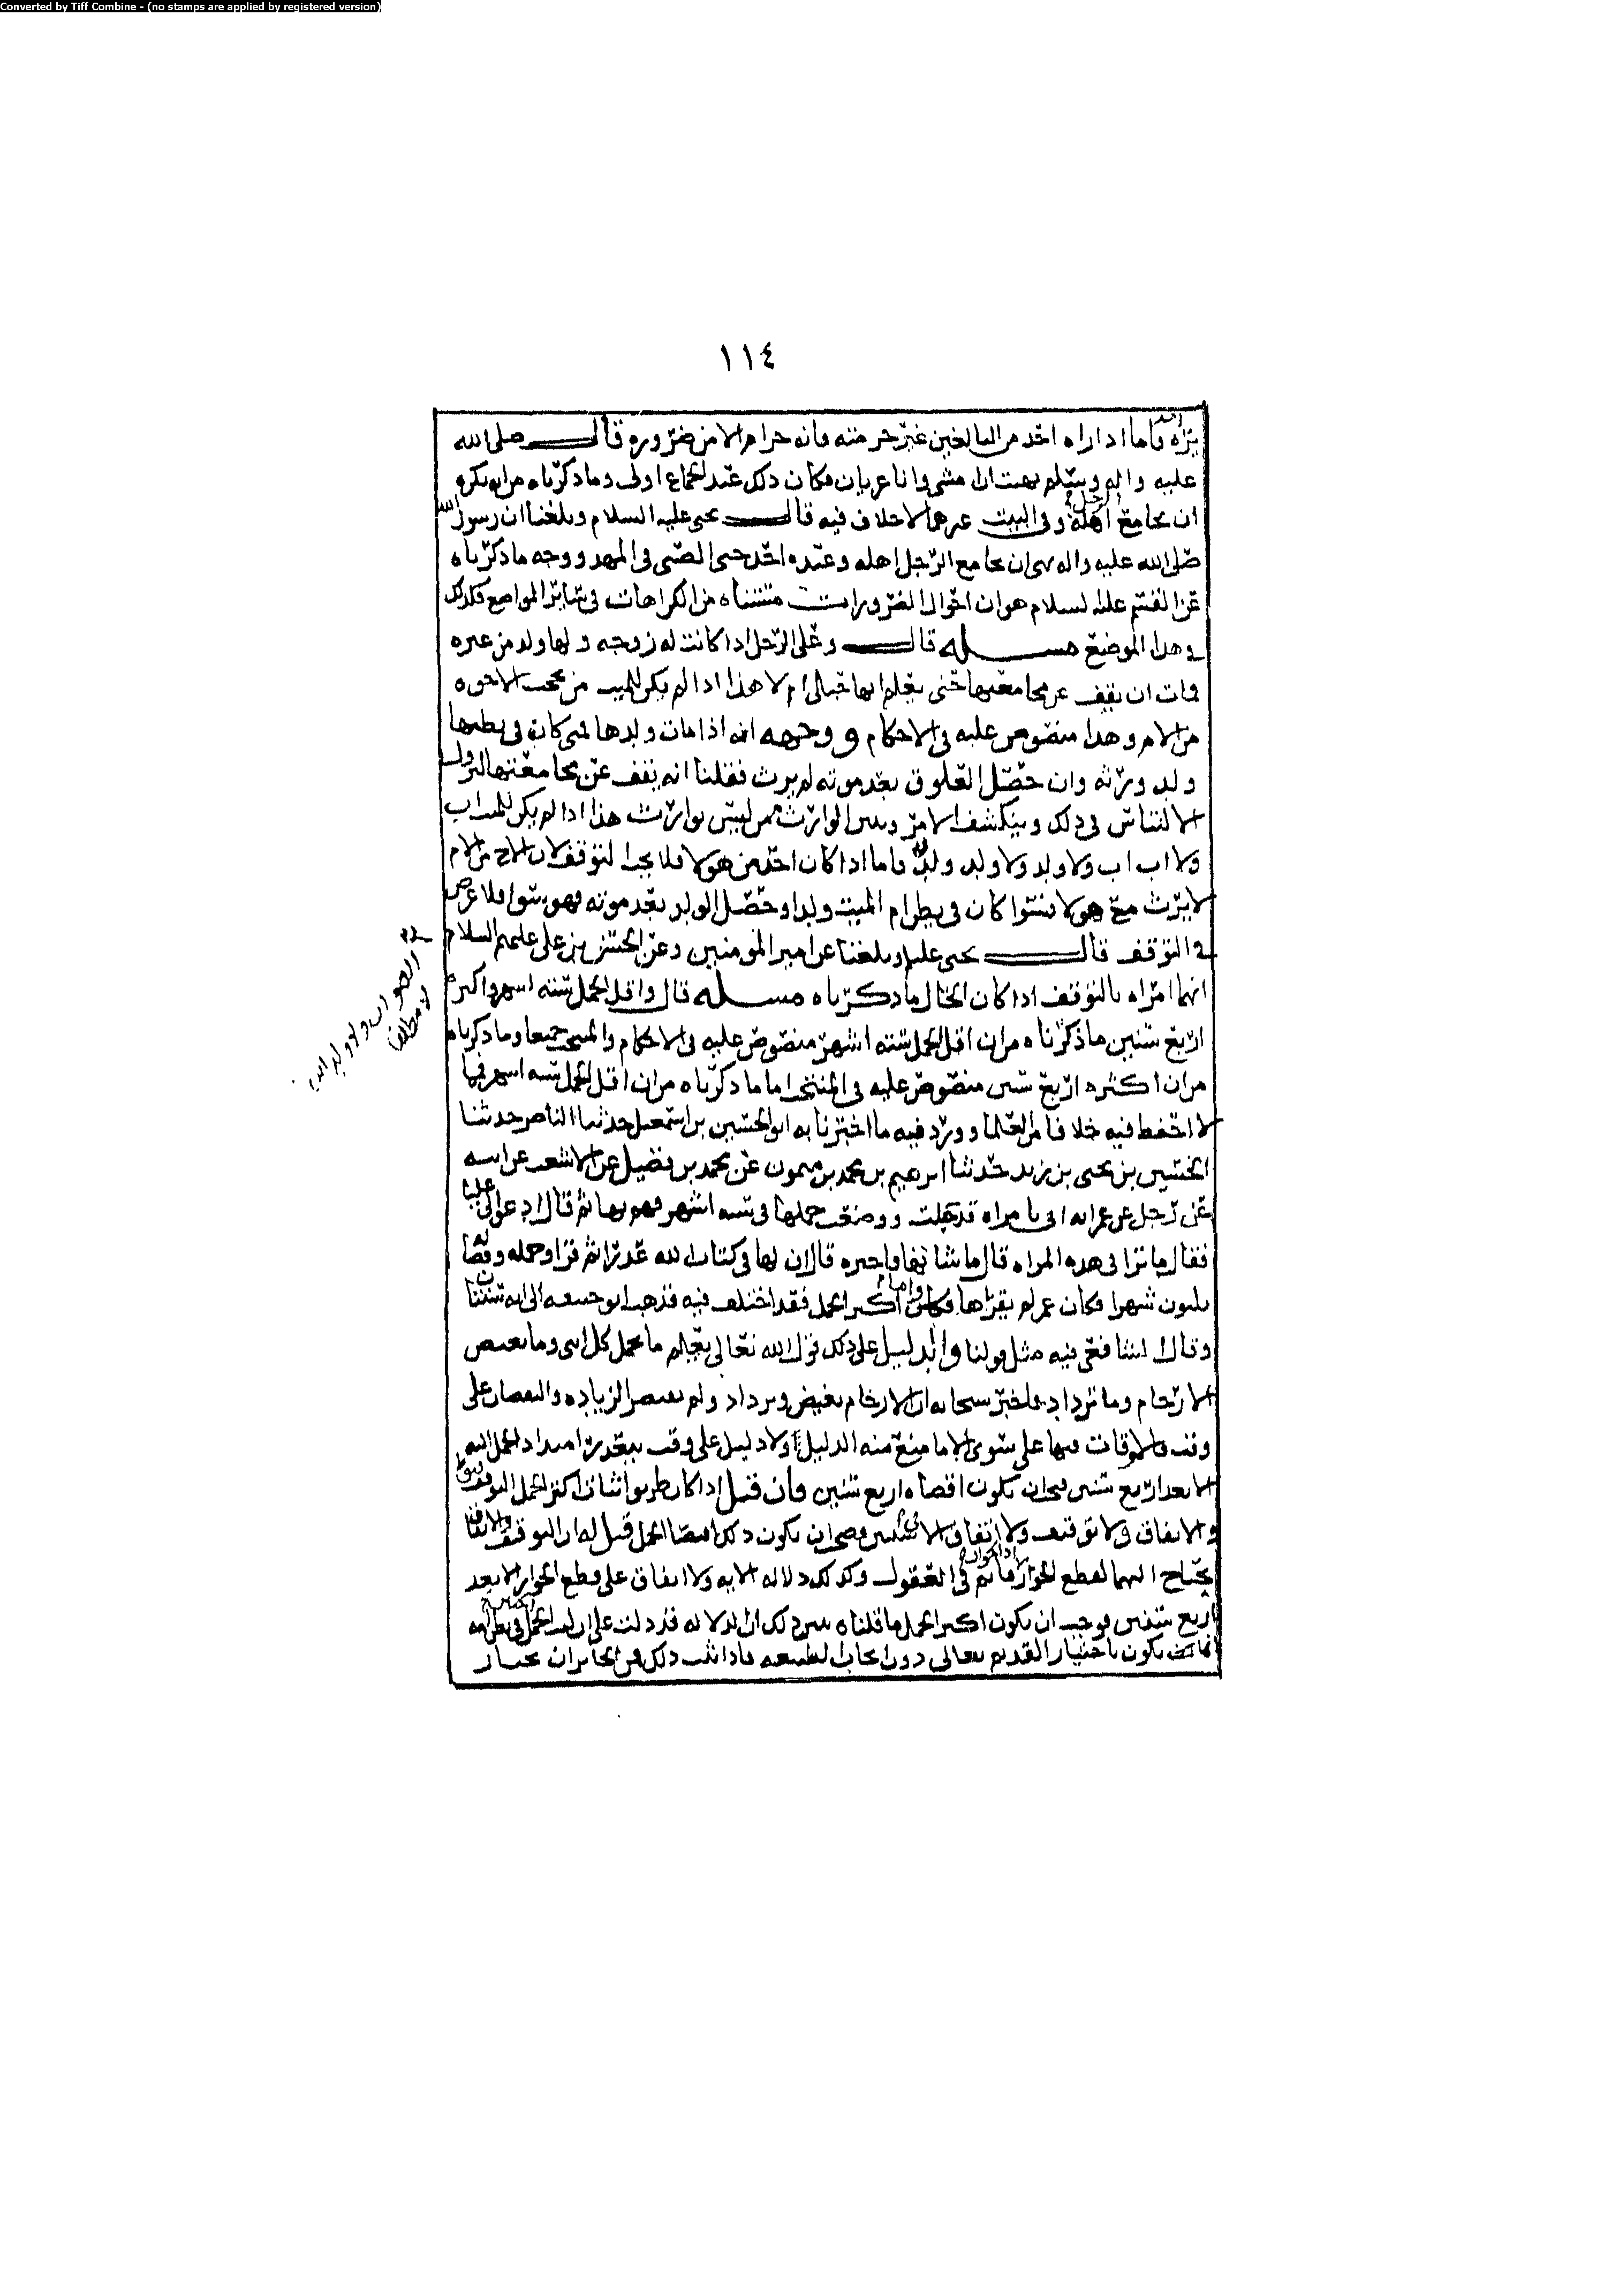 Converted by Tiff Combine - (no stamps are applied by registered version)
١١٤
يراه احد فاما اذا راه احد من البالغين غير حرمته فانه حرام الا من ضروره قال صلى الله
عليه واله وسلم نهيت ان امشي وانا عريان فكان ذلك عند الجماع اولى وما ذكرناه من انه يكره
ان يجامع الرجل اهله وفي البيت غيرهما لا خلاف فيه قال يحيى عليه السلام وبلغنا ان رسول الله
صلى الله عليه واله نهى ان يجامع الرجل اهله وعنده احد حتى الصبي في المهد ووجه ما ذكرناه
عن القسم عليه السلام هو ان احوال الضرورات مستثناه من الكراهات في سائر المواضع فكذلك
في هذا الموضع مسله قال وعلى الرجل اذا كانت له زوجه ولها ولد من غيره
فمات ان يقف عن مجامعتها حتى يعلم ابها حبل ام لا هذا اذا لم يكن للميت من يحجب الاخوه
من الام وهذا منصوص عليه في الاحكام ووجهه انه اذا مات ولدها فمتى كان في بطنها
ولد ورثه وان حصل العلوق بعد موته لم يرث فقلنا انه يقف عن مجامعتها ليزول
الالتباس في ذلك وينكشف الامر ويبين الوارث ممن ليس بوارث هذا اذا لم يكن للميت اب
ولا اب اب ولا ولد ولا ولد ولد فاما اذا كان احد من هولا فلا يجب التوقف لان الاخ من الام
لا يرث مع هولا فسوا كان في بطن ام الميت ولد او حصل الولد بعد موته فهو سوا فلا غرض
في التوقف قال يحيى عليلم وبلغنا عن امير المومنين وعن الحسن بن علي عليهم السلام
انهما امرا بالتوقف اذا كان الحال ما ذكرناه مسله قال واقل الحمل سته اشهر واكثره
اربع سنين ما ذكرناه من ان اقل الحمل سته اشهر منصوص عليه في الاحكام والمنتخب جميعا وما ذكرناه
من ان اكثره اربع سنين منصوص عليه في المنتخب اما ما ذكرناه من ان اقل الحمل سته اشهر فمما
لا احفظ فيه خلافا من العلما وورد فيه ما اخبرنا به ابو الحسين بن اسمعيل حدثنا الناصر حدثنا
الحسين بن يحيى بن زيد حدثنا ابرهيم بن محمد بن ميمون عن محمد بن فضيل عن الاشعث عن ابيه
عن رجل عن عمر انه اتي بامراه قد حملت ووضعت حملها في سته اشهر فهم بها ثم قال ادعوا لي عليا
فقال ما ترا في هذه المراه قال ما شانها فاخبره قال ان لها في كتاب الله عذرا ثم قرا وحمله وفصاله
ثلثون شهرا فكان عمر لم يقراها واما اكثر الحمل فقد اختلف فيه فذهب ابو حنيفه الى انه سنتان
وقال الشافعي فيه مثل قولنا والدليل على ذلك قول الله تعالى يعلم ما تحمل كل انثى وما تغيض
الارحام وما تزداد فاخبر سبحانه ان الارحام تغيض وتزداد ولم يقصر الزياده والنقصان على
وقت فالاوقات فيها على سوى الا ما منع منه الدليل ولا دليل على وقت يتقدر امتداد الحمل اليه
الا بعد اربع سنين فيجب ان يكون اقصاه اربع سنين فان قيل اذا كان طريق اثبات اكثر الحمل التوقيف
والاتفاق ولا توقيف ولا اتفاق الا في سنتين وجب ان يكون ذلك اقصا الحمل قيل له ان التوقيف والاتفاق
يحتاج اليهما لقطع الجواز اذ الجواز قائم في العقول وكذلك دلاله الايه ولا اتفاق على قطع الجواز الا بعد
اربع سنين فوجب ان يكون اكثر الحمل ما قلناه يبين ذلك ان الدلاله قد دلت على ان لبث الحمل في بطن امه
انما يكون باختيار القديم تعالى دون ايجاب الطبيعه فاذا ثبت ذلك فمن الجائز ان يختار